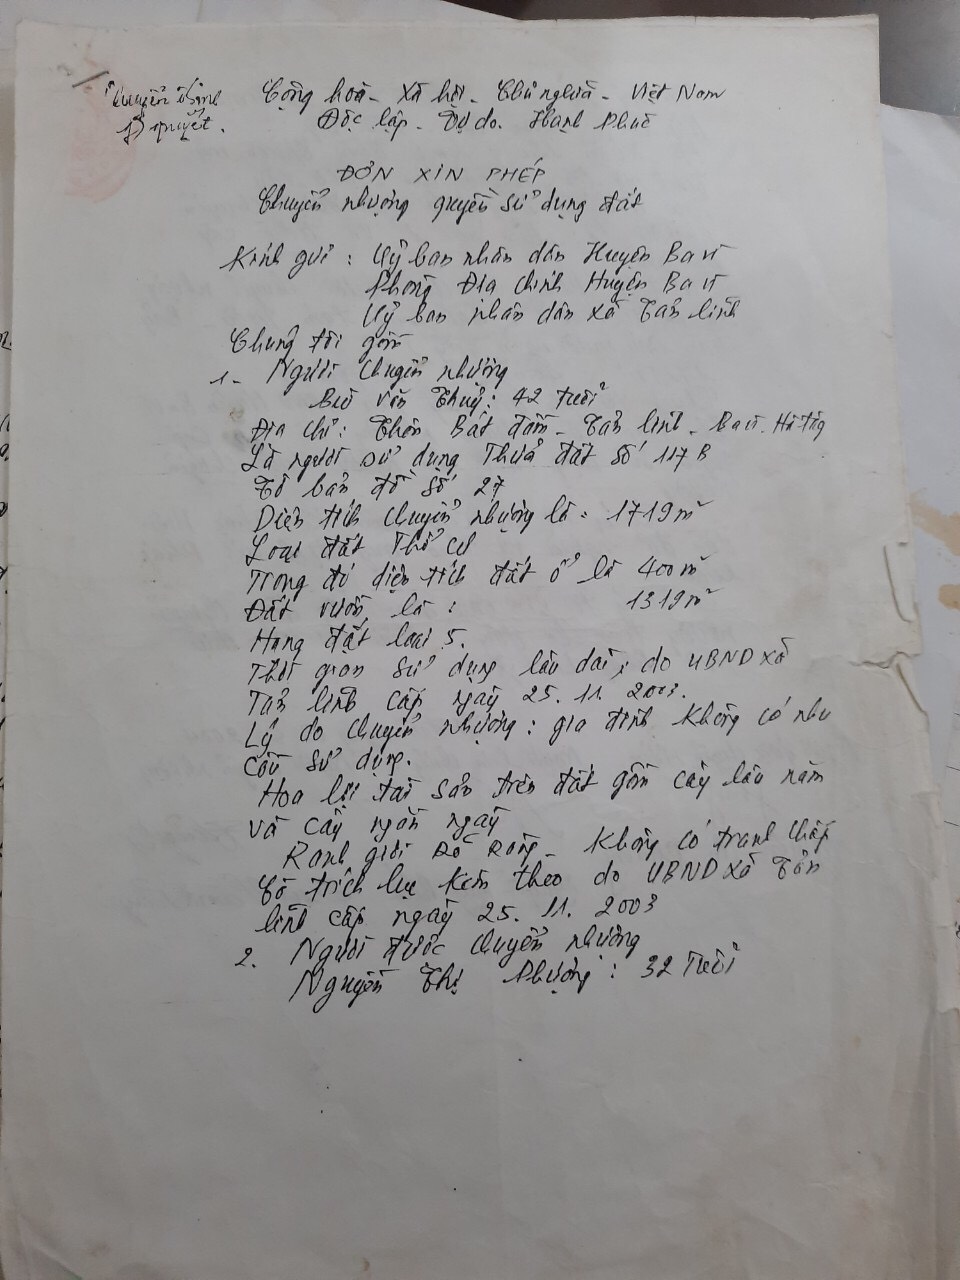 Cộng hoà - Xã hội - Chủ nghĩa - Việt Nam
Độc lập - Tự do. Hạnh Phúc
ĐƠN XIN PHÉP
Chuyển nhượng quyền sử dụng đất
Kính gửi : Uỷ ban nhân dân Huyện Ba vì
Phòng Địa chính Huyện Ba vì
Uỷ ban nhân dân xã Tản lĩnh
Chúng tôi gồm
1- Người chuyển nhượng
văn Thuỷ: 42 tuổi
Địa chỉ: Thôn Bát đầm - Tản lĩnh - Ba vì. Hà Tây
Là người sử dụng Thửa đất số 117B
Tờ bản đồ số 27
Diện tích chuyển nhượng là: 1719 m²
Loại đất Thổ cư
Trong đó diện tích đất ở là 400 m²
Đất vườn là : 1319 m²
Hạng đất loại 5.
Thời gian sử dụng lâu dài; do UBND xã
Tản lĩnh cấp ngày 25. 11. 2003.
Lý do chuyển nhượng: gia đình không có nhu
cầu sử dụng.
Hoa lợi tài sản trên đất gồm cây lâu năm
và cây ngắn ngày
Ranh giới rõ ràng - Không có tranh chấp
Có trích lục kèm theo do UBND xã Tản
lĩnh cấp ngày 25. 11. 2003
2. Người được chuyển nhượng
Nguyễn Thị Phượng : 32 Tuổi